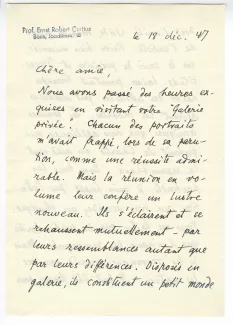 Prof. Ernst Robert Curtius
Bonn, Joachimstr.
le 18 déc. 47
Chère amie,
Nous avons passé des heures ex-
quises en visitant votre "Galerie
privée". Chacun des portraits
m'avait frappé, lors de sa paru-
tion, comme une réussite admi-
rable. Mais la réunion en vo-
lume leur confère un lustre
nouveau. Ils s'éclairent et se
rehaussent mutuellement - par
leurs ressemblances autant que
par leurs différences. Disposés en
galerie, ils constituent un petit monde